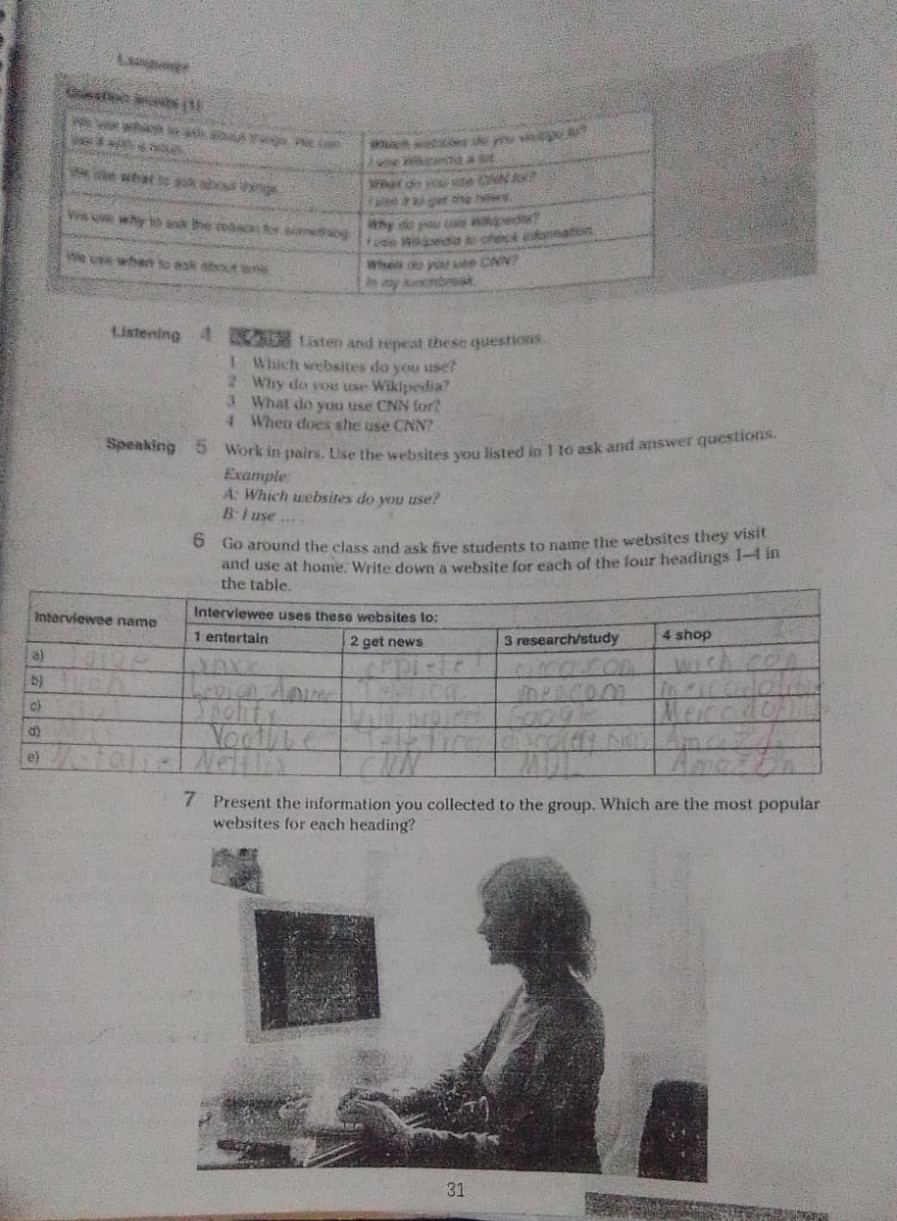 Language
Question words (1)
We use which to ask about things. We can
use it with a noun.
Which websites do you
I use Wikipedia a lot.
We use what to ask about things.
What do you use CNN for?
I use it to get the news.
We use why to ask the reason for something.
Why do you use Wikipedia?
I use Wikipedia to check information.
We use when to ask about time.
When do you use CNN?
In my lunchbreak.
Listening 4 Listen and repeat these questions.
1 Which websites do you use?
2 Why do you use Wikipedia?
3 What do you use CNN for?
4 When does she use CNN?
Speaking 5 Work in pairs. Use the websites you listed in 1 to ask and answer questions.
Example:
A: Which websites do you use?
B: I use ... .
6 Go around the class and ask five students to name the websites they visit
and use at home. Write down a website for each of the four headings 1–4 in
the table.
Interviewee name
Interviewee uses these websites to:
1 entertain 2 get news 3 research/study 4 shop
a) xnxx
b)
c) Spotify Google
d) Youtube Amazon
e) Natalie Netflix CNN Amazon
7 Present the information you collected to the group. Which are the most popular
websites for each heading?
31